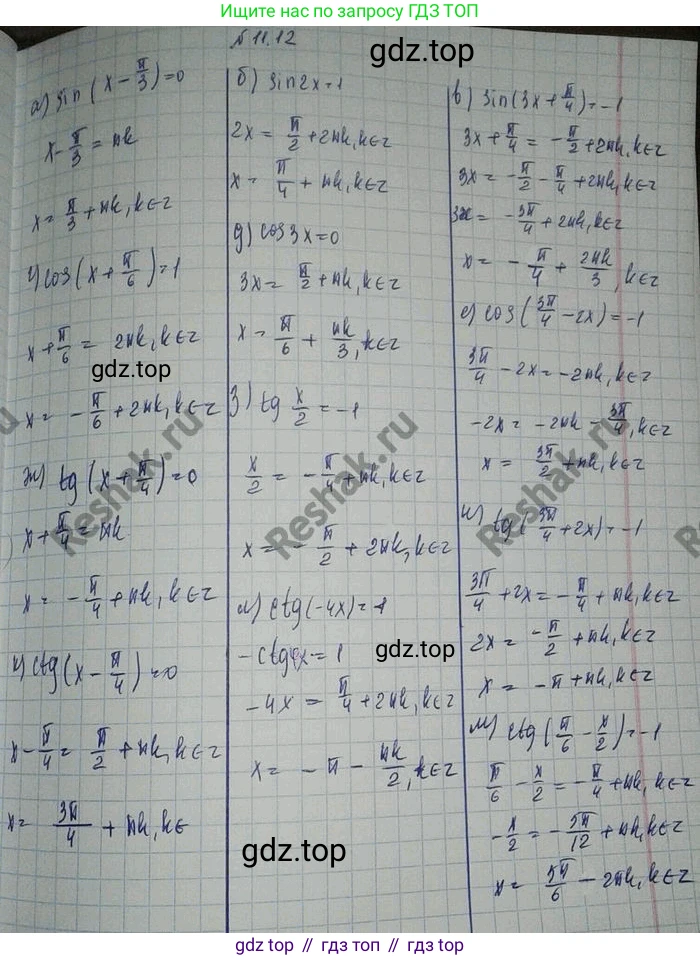 Ищите нас по запросу ГДЗ ТОП
№ 11.12
gdz.top
а) sin(x - π/3) = 0
x - π/3 = πk
x = π/3 + πk, k∈z
г) cos(x + π/6) = 1
x + π/6 = 2πk, k∈z
gdz.top
x = -π/6 + 2πk, k∈z
ж) tg(x + π/4) = 0
x + π/4 = πk
x = -π/4 + πk, k∈z
к) ctg(x - π/4) = 0
x - π/4 = π/2 + πk, k∈z
x = 3π/4 + πk, k∈
б) sin2x = 1
2x = π/2 + 2πk, k∈z
x = π/4 + πk, k∈z
д) cos3x = 0
3x = π/2 + πk, k∈z
x = π/6 + πk/3, k∈z
з) tg x/2 = -1
x/2 = -π/4 + πk, k∈z
x = -π/2 + 2πk, k∈z
л) ctg(-4x) = 1
-ctg4x = 1
gdz.top
-4x = π/4 + 2πk, k∈z
x = -π - πk/2, k∈z
gdz.top
в) sin(3x + π/4) = -1
3x + π/4 = -π/2 + 2πk, k∈z
3x = -π/2 - π/4 + 2πk, k∈z
3x = -3π/4 + 2πk, k∈z
x = -π/4 + 2πk/3, k∈z
е) cos(3π/4 - 2x) = -1
3π/4 - 2x = -2πk, k∈z
-2x = -2πk - 3π/4, k∈z
x = 3π/2 + πk, k∈z
и) tg(3π/4 + 2x) = -1
3π/4 + 2x = -π/4 + πk, k∈z
2x = -π/2 + πk, k∈z
x = -π + πk, k∈z
м) ctg(π/6 - x/2) = -1
π/6 - x/2 = -π/4 + πk, k∈z
-x/2 = -5π/12 + πk, k∈z
x = 5π/6 - 2πk, k∈z
Reshak.ru
Reshak.ru
gdz.top // гдз топ // гдз.top